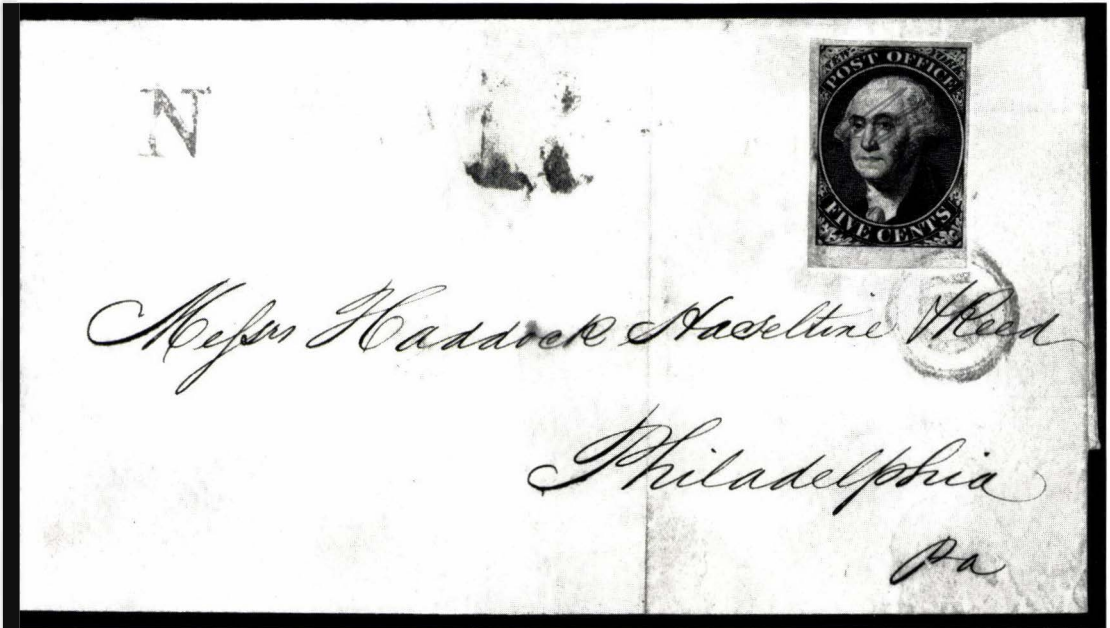 N
NEW YORK
POST OFFICE
FIVE CENTS
Messrs Haddock Haseltine & Reed
Philadelphia
Pa